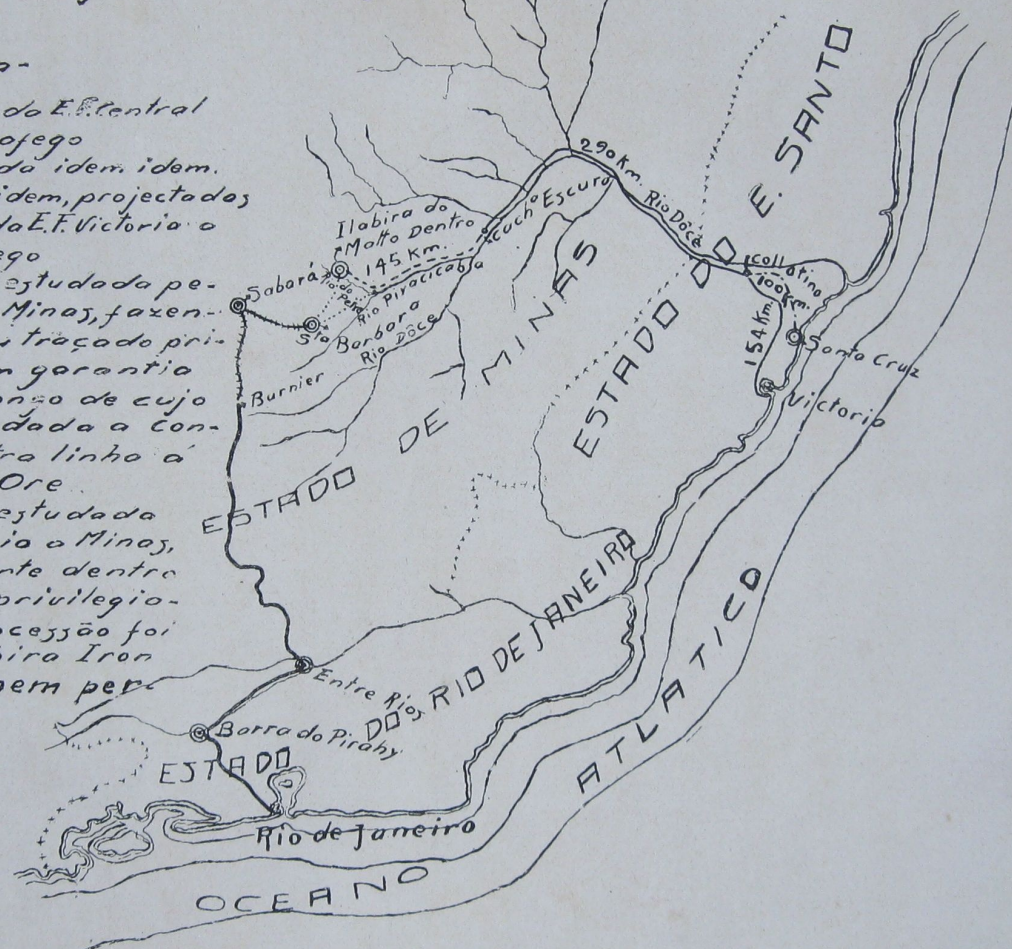 da E.F. Central
ofego
da idem. idem.
idem, projectados
da E.F. Victoria a
ego
estudada pe-
Minas, fazen-
traçado pri-
garantia
de cujo
dada a con-
tra linha á
Ore
estudada
a Minas,
nte dentro
privilegio-
cessão foi
bira Iron
bem per-
E. SANTO
290 Km.
Escura
Rio Dôce
Itabira do
Matto Dentro
145 Km.
Piracicaba
Sabará
Rio
Sta Barbara
Rio Dôce
Burnier
Collatino
100 Km.
154 Km.
Santa Cruz
Victoria
ESTADO DE MINAS
ESTADO DO
Entre Rios
Barra do Pirahy
ESTADO DO RIO DE JANEIRO
Rio de Janeiro
OCEANO ATLATICO